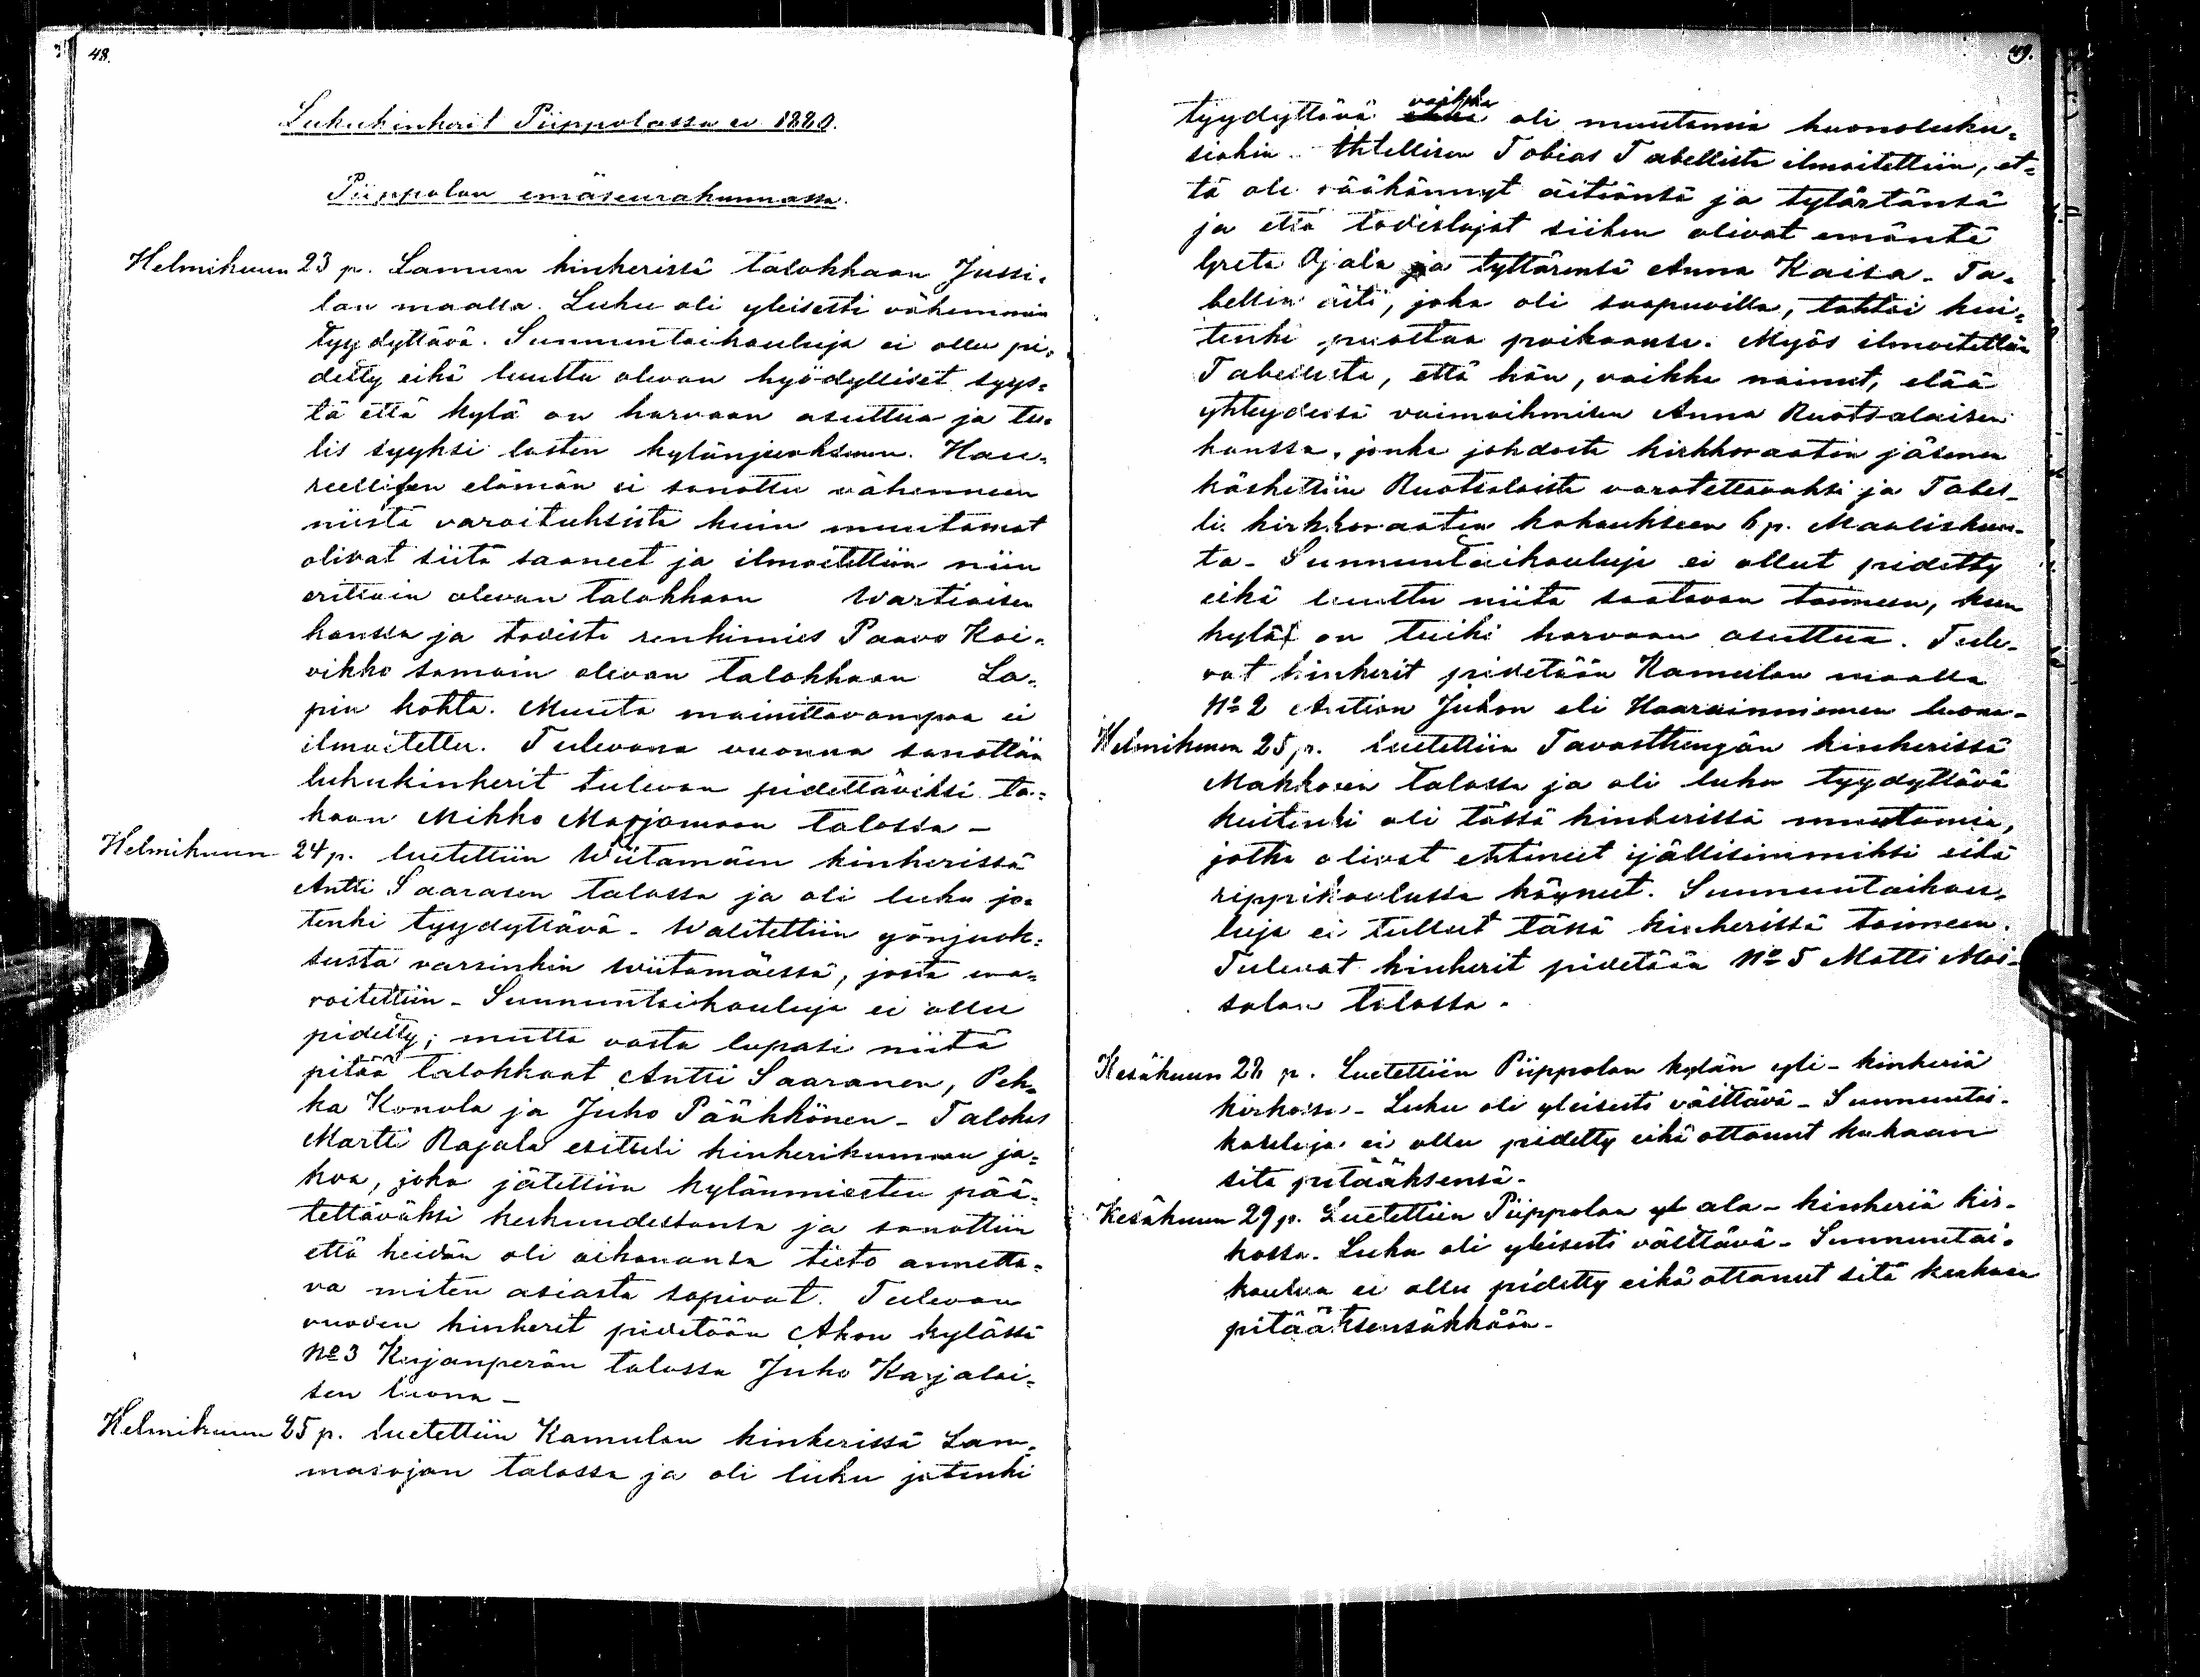 48.
Lukukinkerit Piippolassa v. 1880.
Piippolan emäseurakunnassa.
Helmikuun 23 p. Lamun kinkerissä talokkaan Jussi=
lan maalla. Luku oli yleisesti vähemmin
tyydyttävä. Sunnuntaikouluja ei ollu pi=
detty eikä luultu olevan hyödylliset syys=
tä että kylä on harvaan asuttua ja tu=
lis syyksi lasten kylänjuoksuun. Hau=
reellisen elämän ei sanottu vähenneen
niistä varoituksista kuin muutamat
olivat siitä saaneet ja ilmoitettiin niin
erittäin olevan talokkaan Wartiaisen
kanssa ja todisti renkimies Paavo Koi=
vikko samoin olevan talokkaan La=
pin kohta. Muuta mainittavampaa ei
ilmoitettu. Tulevana vuonna sanottiin
lukukinkerit tulevan pidettäviksi ta=
kaan Mikko Marjomaan talossa –
Helmikuun 24 p. luetettiin Wiitamäen kinkerissä
Antti Saarasen talossa ja oli luku jo=
tenki tyydyttävä – Walitettiin yönjuok=
susta varsinkin Wiitamäessä, josta wa=
roitettiin – Sunnuntaikouluja ei ollu
pidetty; mutta vasta lupasi niitä
pitää talokkaat Antti Saaranen, Pek=
ka Konola ja Juho Pääkkönen – Talokas
Martti Rajala esitteli kinkerikunnan ja=
koa, joka jätettiin kylänmiesten pää=
tettäväksi keskuudestansa ja sanottiin
että heidän oli aikanansa tieto annetta=
va miten asiasta sopivat. Tulevan
vuoden kinkerit pidetään Ahon kylässä
No 3 Karjanperän talossa Juho Karjalai=
sen luona –
Helmikuun 25 p. luetettiin Kamulan kinkerissä Lam=
masojan talossa ja oli luku jotenki
49.
tyydyttävä vaikka oli muutamia huonoluku=
siakin. Itsellisen Tobias Tabellista ilmoitettiin, et=
tä oli rääkännyt äitiänsä ja tytärtänsä
ja että todistajat siihen olivat emäntä
Greta Ojala ja tyttärensä Anna Kaisa – Ta=
bellin äiti, joka oli saapuvilla, tahtoi kui=
tenki puoltaa poikaansa. Myös ilmoitettiin
Tabellista, että hän, vaikka nainut, elää
yhteydessä vaimoihmisen Anna Ruotsalaisen
kanssa, jonka johdosta kirkkoraatin jäsenen
käskettiin Ruotsalaista varotettavaksi ja Tabel=
li kirkkoraatin kokoukseen 6 p. Maaliskuu=
ta – Sunnuntaikouluja ei ollut pidetty
eikä luultu niitä saatavan toimeen, kun
kylä on tuiki harvaan asuttua. Tule=
vat kinkerit pidetään Kamulan maalla
No 2 Antian Juhon eli Haarainniemen luona –
Helmikuun 25 p. luetettiin Tavasthengän kinkerissä
Makkosen talossa ja oli luku tyydyttävä
kuitenki oli tässä kinkerissä muutamia,
jotka olivat ehtineet ijällisimmiksi eikä
rippikoulussa käyneet. Sunnuntaikou=
luja ei tullut tässä kinkerissä toimeen.
Tulevat kinkerit pidetään No 5 Matti Moi=
salan talossa.
Kesäkuun 28 p. Luetettiin Piippolan kylän yli-kinkeriä
kirkossa – Luku oli yleisesti välttävä – Sunnuntai=
kouluja ei ollu pidetty eikä ottanut kukaan
sitä pitääksensä –
Kesäkuun 29 p. Luetettiin Piippolan ala-kinkeriä kir=
kossa. Luku oli yleisesti välttävä – Sunnuntai=
koulua ei ollu pidetty eikä ottanut sitä kukaan
pitääksensäkkään –